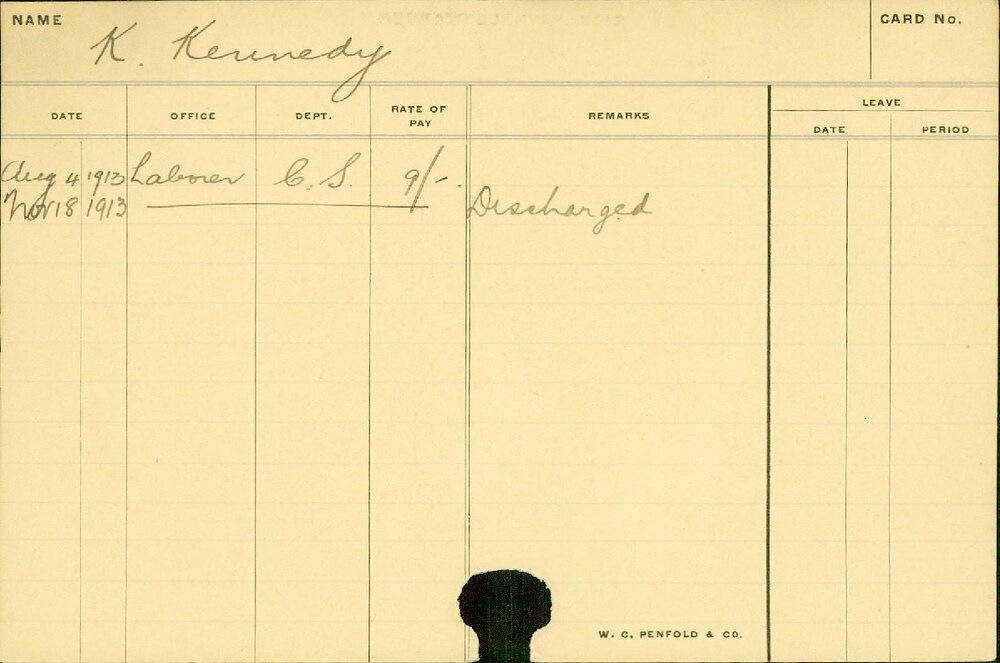 NAME K. Kennedy CARD No.
DATE OFFICE DEPT. RATE OF PAY REMARKS LEAVE
DATE PERIOD
Aug 4 1913 Laborer C.S. 9/-.
Nov 18 1913 Discharged
W. C. PENFOLD & CO.